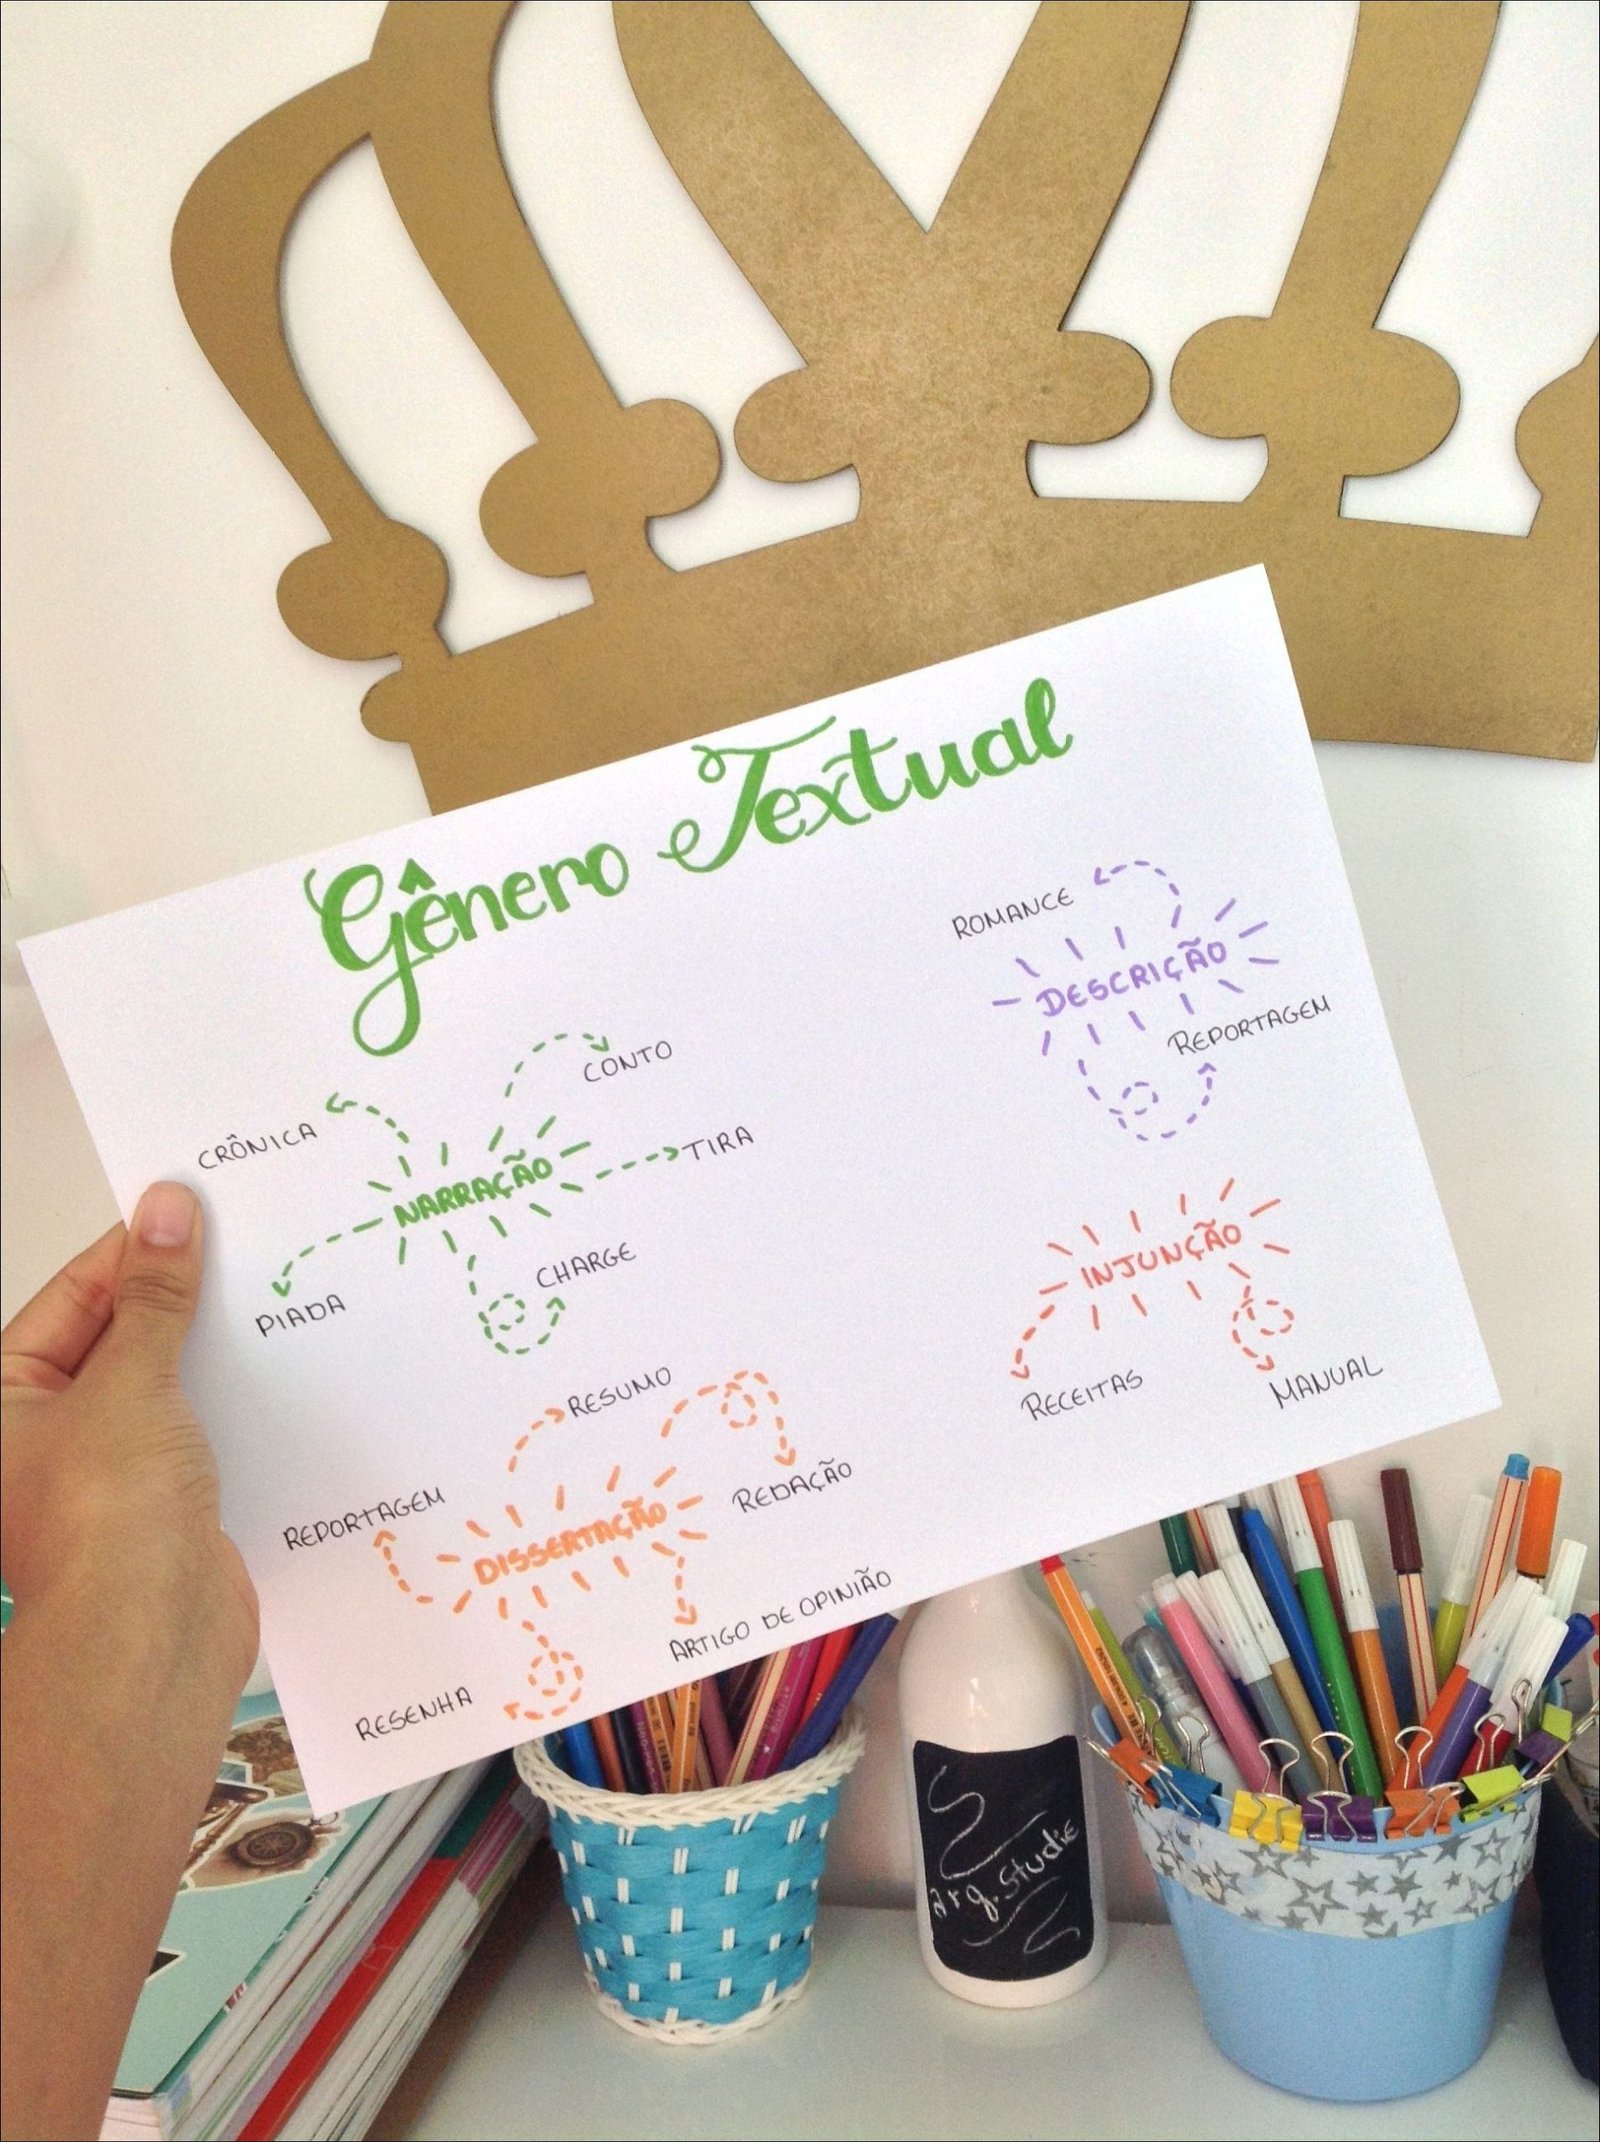 Gênero Textual
CRÔNICA
CONTO
TIRA
NARRAÇÃO
PIADA
CHARGE
ROMANCE
DESCRIÇÃO
REPORTAGEM
INJUNÇÃO
RECEITAS
MANUAL
RESUMO
REPORTAGEM
REDAÇÃO
DISSERTAÇÃO
ARTIGO DE OPINIÃO
RESENHA
arg.studie